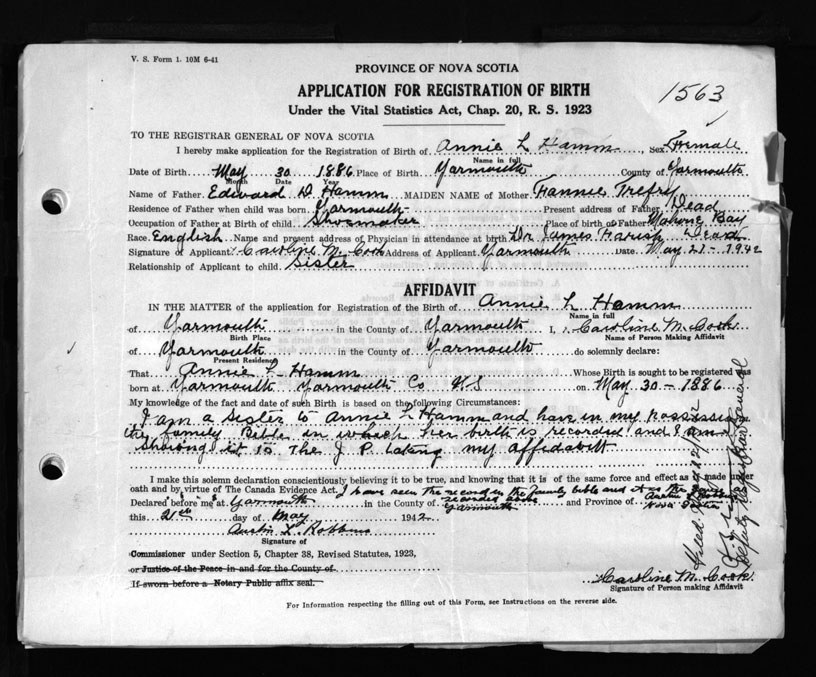 V. S. Form 1. 10M 6-41
PROVINCE OF NOVA SCOTIA
APPLICATION FOR REGISTRATION OF BIRTH
1563
Under the Vital Statistics Act, Chap. 20, R. S. 1923
TO THE REGISTRAR GENERAL OF NOVA SCOTIA
I hereby make application for the Registration of Birth of Annie L Hamm, Sex Female
Name in full
Date of Birth May 30 1886 Place of Birth Yarmouth County of Yarmouth
Month Date Year
Name of Father Edward D. Hamm MAIDEN NAME of Mother Fannie Trefry
Residence of Father when child was born Yarmouth Present address of Father Dead
Occupation of Father at Birth of child Shoemaker Place of birth of Father Mahone Bay
Race English Name and present address of Physician in attendance at birth Dr James Farish Dead
Signature of Applicant Caroline M. Cook Address of Applicant Yarmouth Date May 21 - 1942
Relationship of Applicant to child Sister
AFFIDAVIT
IN THE MATTER of the application for Registration of the Birth of Annie L Hamm
Name in full
of Yarmouth in the County of Yarmouth I, Caroline M. Cook
Birth Place Name of Person Making Affidavit
of Yarmouth in the County of Yarmouth do solemnly declare:
Present Residence
That Annie L. Hamm Whose Birth is sought to be registered was
born at Yarmouth Yarmouth Co N.S on May 30 - 1886.
My knowledge of the fact and date of such Birth is based on the following Circumstances:
I am a Sister to Annie L Hamm and have in my possession
the family Bible in which her birth is recorded and I am
showing it to The J P taking my affidavit
I make this solemn declaration conscientiously believing it to be true, and knowing that it is of the same force and effect as if made under
oath and by virtue of The Canada Evidence Act. I have seen the record in the family bible and it is the same as
recorded above Austin L Robbins
Declared before me at Yarmouth in the County of Yarmouth and Province of Nova Scotia
this 21st day of May 1942
Austin L. Robbins
Signature of
Commissioner under Section 5, Chapter 38, Revised Statutes, 1923,
or Justice of the Peace in and for the County of
If sworn before a Notary Public affix seal.
Caroline M. Cook
Signature of Person making Affidavit
For Information respecting the filling out of this Form, see Instructions on the reverse side.
Filed
Deputy Registrar General